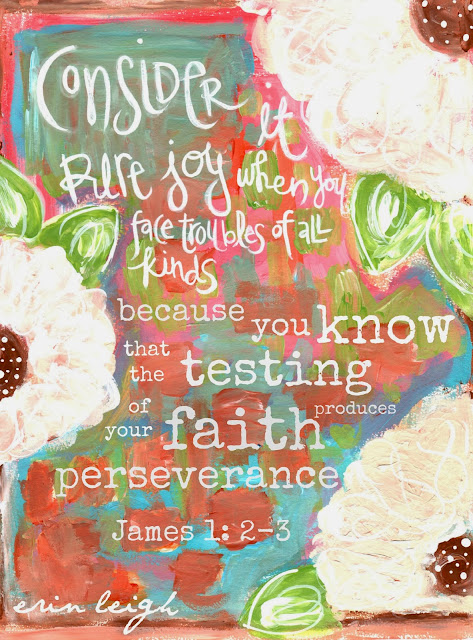 Consider
it
Pure joy when you
face troubles of all
kinds
because you know
that
the testing
of
your faith produces
perseverance
James 1: 2-3
erin leigh